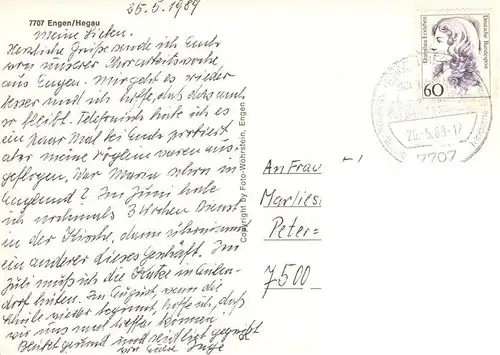 25.5.1989
7707 Engen/Hegau
Meine Lieben.
Herzliche Grüße sende ich Euch
von unserer
aus Engen. Mir geht es wieder
besser und ich hoffe, daß das auch
so bleibt. Telefonisch habe ich es
ein paar Mal bei Euch probiert
aber meine Vöglein waren aus-
geflogen. War Maria schon in
England? Im Juni habe
ich nochmals 3 Wochen Dienst
in der Kirche, dann übernimmt
ein anderer dieses Geschäft. Im
Juli muß ich die Katze in
hüten. Im August, wenn die
Schule wieder beginnt, hoffe ich, daß
wir uns mal treffen können.
Bleibt gesund und seid lieb gegrüßt
von Eurer
Copyright by Foto-Wöhrstein, Engen
Deutsche Bundespost
60
26.-5.89-17
7707
An Frau
Marlies
Peter=
7500